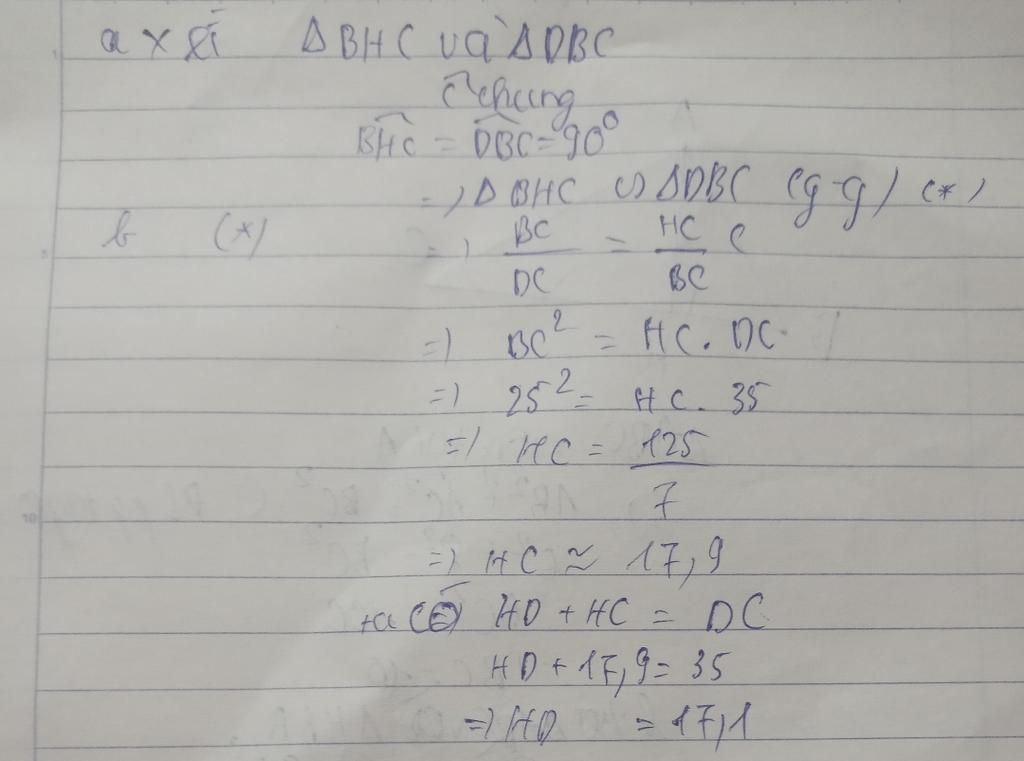 a xét ΔBHC và ΔDBC
Ĉ chung
BHC = DBC = 90⁰
=) ΔBHC ∽ ΔDBC (g-g) (*)
b (*) =) BC/DC = HC/BC
=) BC² = HC. DC
=) 25² = HC. 35
=) HC = 125/7
=) HC ≈ 17,9
ta có HD + HC = DC
HD + 17,9 = 35
=) HD = 17,1